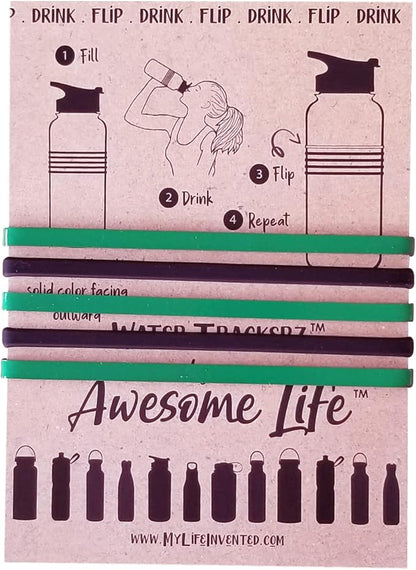 . DRINK . FLIP . DRINK . FLIP . DRINK . FLIP . DRINK
1 Fill
2 Drink
3 Flip
4 Repeat
solid color facing
outward
WATER TRACKERZ™
Awesome Life™
WWW.MYLIFEINVENTED.COM